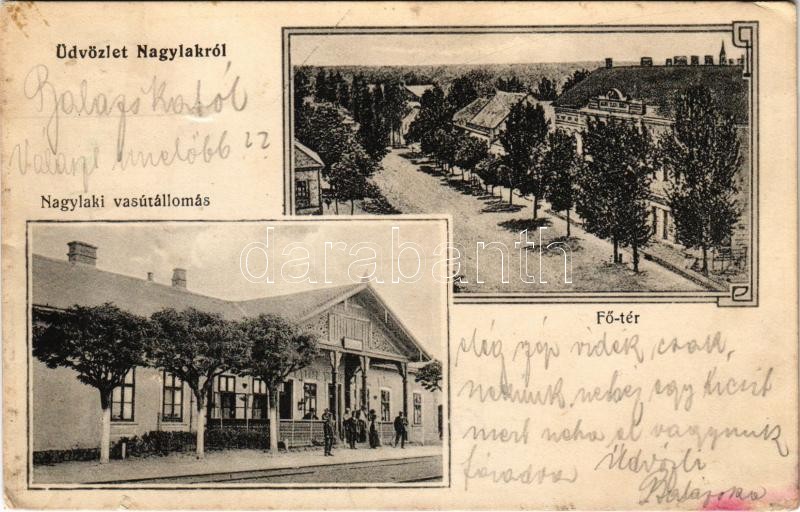 Üdvözlet Nagylakról
Balázskától
Választ mielőbb!!
Nagylaki vasútállomás
darabanth
Fő-tér
elég szép vidék, csak,
nekünk nehéz egy kicsit
mert néha el vagyunk
fáradva Üdvözli
Balázska